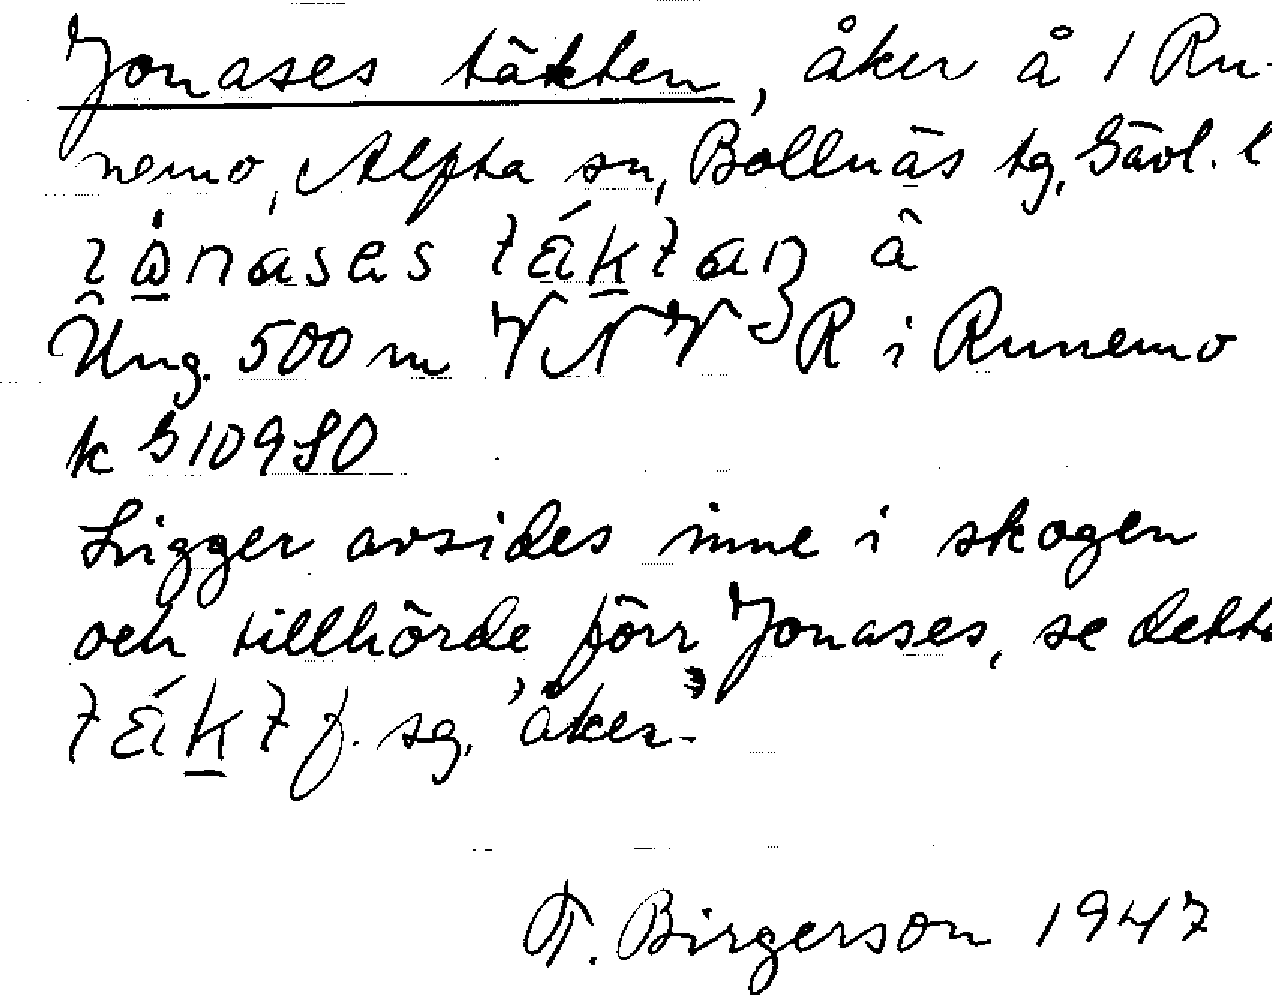 Jonases täkten, åker å 1 Ru-
nemo, Alfta sn, Bollnäs tg, Gävl. l
jo̱nases táktan å
Ung. 500 m VNV R i Runemo
k G10980
Ligger avsides inne i skogen
och tillhörde förr Jonases, se detta
tákt f. sg. 'åker'.
T. Birgerson 1947